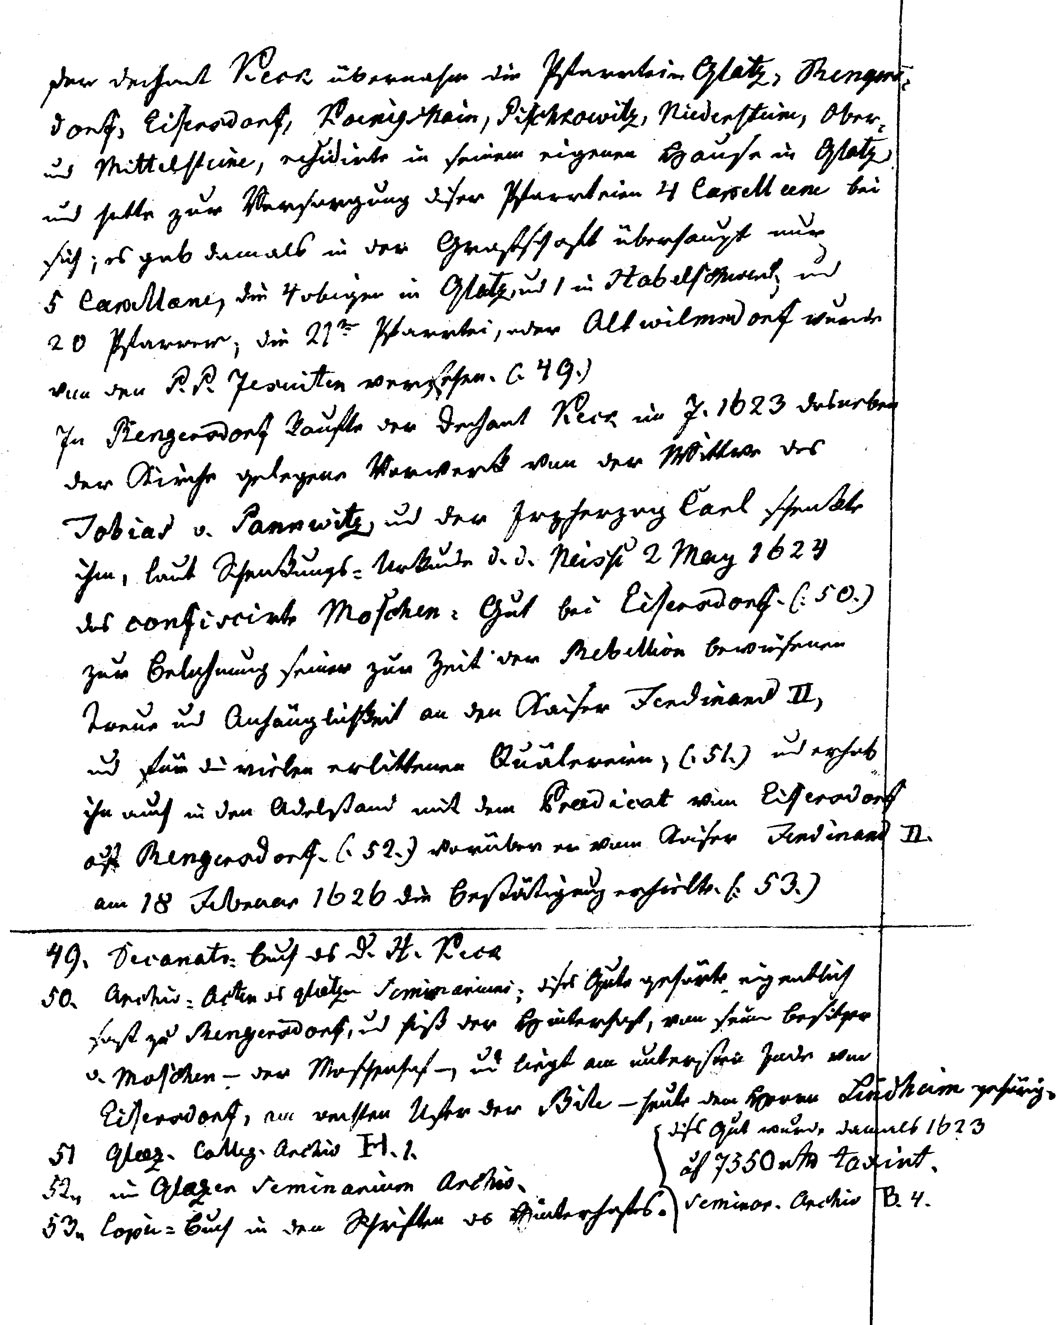 der Dechant Keck übernahm die Pfarrteien Glatz, Rengers-
dorf, Eisersdorf, Koenigshain, Pischkowitz, Niedersteine, Ober-
und Mittelsteine, residirte in seinem eigenen Hause in Glatz,
und hatte zur Versorgung dieser Pfarrteien 4 Capellane bei
sich; es gab damals in der Grafschaft überhaupt nur
5 Capellane, die 4 obigen in Glatz, und 1 in Habelschwerd, und
20 Pfarrer; die 21te Pfarrtei, oder Altwilmsdorf wurde
von den P.P. Jesuiten versehen. (: 49.)
In Rengersdorf kaufte der Dechant Keck im J. 1623 das neben
der Kirche gelegene Vorwerk von der Wittwe des
Tobias v. Pannwitz, und der Erzherzog Carl schenkte
ihm, laut Schenkungs-Urkunde d. d. Neisse 2 May 1624
das confiscirte Moschen-Gut bei Eisersdorf. (: 50.)
zur Belohnung seiner zur Zeit der Rebellion bewiesenen
Treue und Anhänglichkeit an den Kaiser Ferdinand II,
und für die vielen erlittenen Quälereien, (: 51.) und erhob
ihn auch in den Adelstand mit dem Praedicat von Eisersdorf
auf Rengersdorf. (: 52.) worüber er vom Kaiser Ferdinand II.
am 18 Februar 1626 die Bestätigung erhielt. (: 53.)
49. Decanats-Buch des D. H. Keck
50. Archiv-Acten des glatzer Seminariums; dieses Gut gehörte eigentlich
fast zu Rengersdorf, und hieß der Hinterhof, von seinem Besitzer
v. Moschen – der Moschenhof –, und liegt am untersten Ende von
Eisersdorf, am rechten Ufer der Biele – heute dem Herrn Lindheim gehörig.
dieses Gut wurde damals 1623
auf 7350 rth taxirt.
Seminar. Archiv B. 4.
51 Glaz. Colleg. Archiv H. 1.
52. im Glazer Seminarium Archiv.
53. Copien-Buch in den Schriften des Hinterhofes.